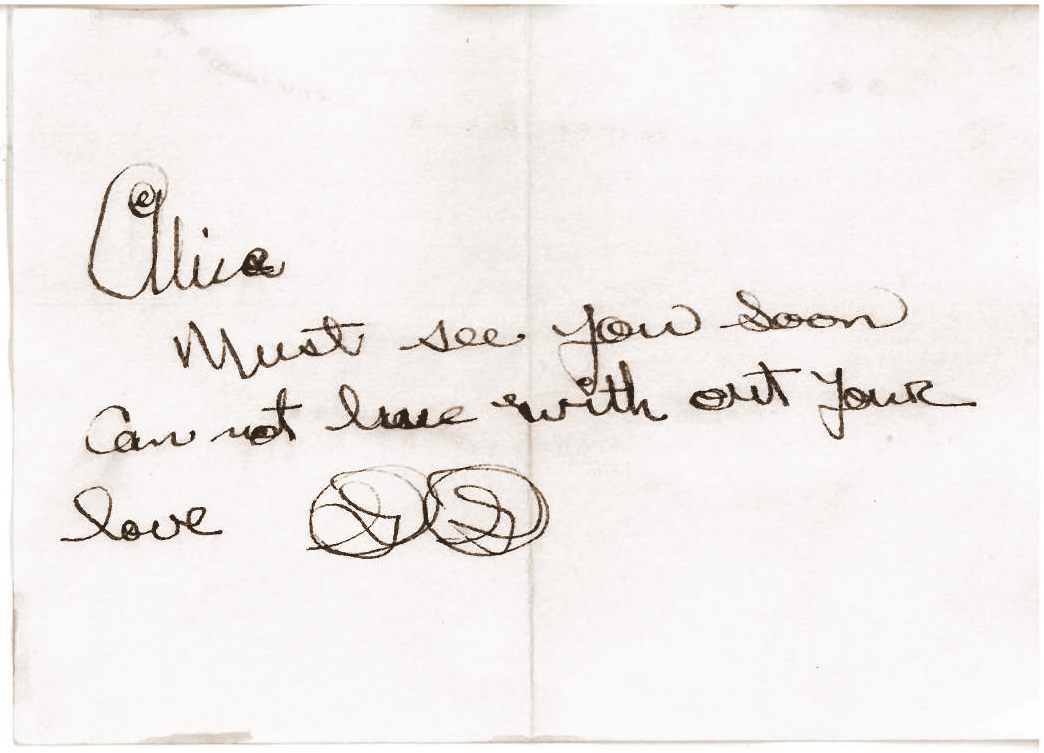 Alice
Must see you soon
Can not live with out your
love